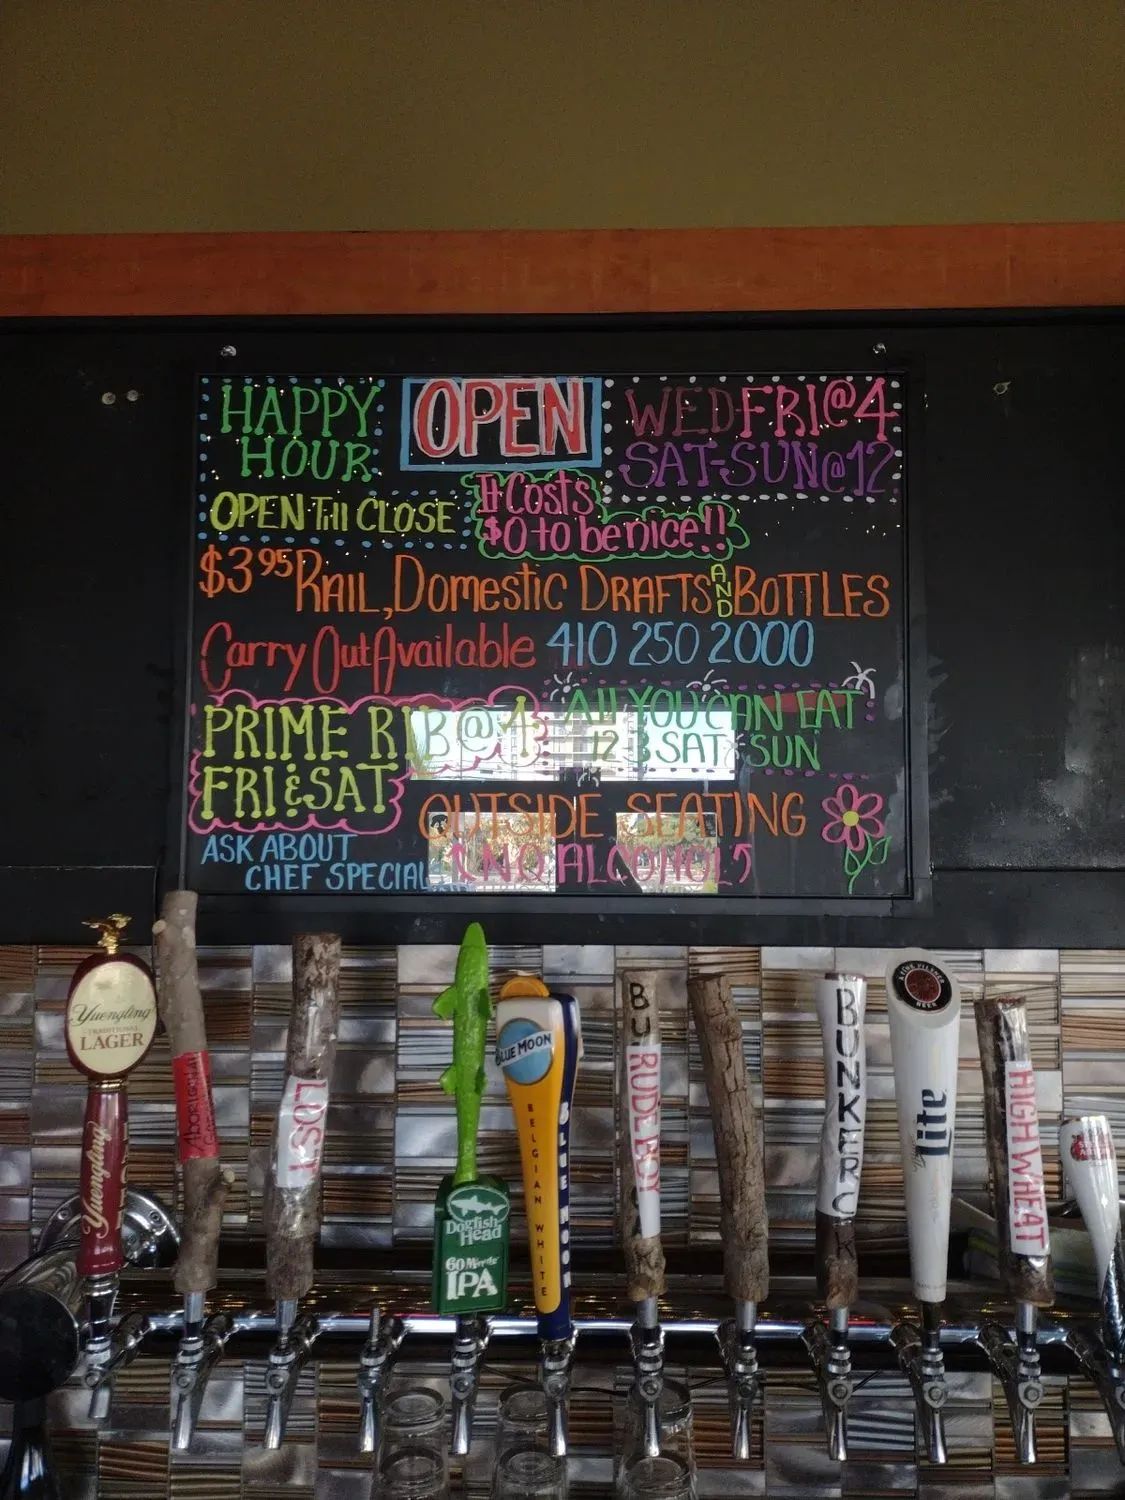 HAPPY
HOUR
OPEN
WED-FRI@4
SAT-SUN@12
OPEN Till CLOSE
It Costs
$0 to be nice!!
$3.95 RAIL, Domestic DRAFTS AND BOTTLES
Carry Out Available 410 250 2000
PRIME RIB @ 4
FRI & SAT
All YOU CAN EAT
12 SAT SUN
OUTSIDE SEATING
NO ALCOHOL
ASK ABOUT
CHEF SPECIAL
Yuengling
TRADITIONAL
LAGER
Yuengling
LOST
Dogfish
Head
60 Minute
IPA
BLUE MOON
BELGIAN WHITE
BLUE MOON
RUDE BOY
BUNKER C
Lite
HIGH WHEAT